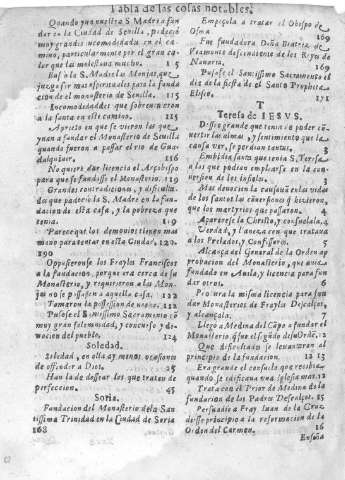 Tabla de las cosas notables.
Quando yua nuestra S. Madre a fun
dar en la Ciudad de Seuilla, padeciò
muy grandes incomodidades en el ca
mino, particularmente por el gran ca
lor que las molestaua mucho. 115
las Monjas, que
para la funda
cion de el monasterio de Seuilla. 115
Incomodidades que sobreuinieron
a la santa en este camino. 115
Aprieto en que se vieron las que
yuan a fundar el Monasterio de Seuilla
quando fueron a passar el rio de Gua
dalquiuir. 116
No quiere dar licencia el Arçobispo
para que se fundasse el Monasterio. 119
Grandes contradiciones, y dificulta
des que padeciò la S. Madre en la fun
dacion de esta casa, y la pobreza que
tenia. 119
Parece que los demonios tienen mas
mano para tentar en esta Ciudad. 120.
190
Opusieronse los Frayles Franciscos
a la fundacion, porque era cerca de su
Monasterio, y requirieron a las Mon
jas no se passassen a aquella casa. 122
Tomaron la possession de noche. 122
Pusose el Santissimo Sacramento cō
muy gran solemnidad, y concurso y de-
uocion del pueblo. 124
Soledad.
Soledad, en ella ay menos ocasiones
de offender a Dios. 25
Han la de dessear los que traten de
perfeccion. 43
Soria.
Fundacion del Monasterio de la San
tissima Trinidad en la Ciudad de Soria
168
Empieçola a tratar el Obispo de
Osma 169
Fue fundadora Doña Beatriz de
Veamonte descendiente de los Reyes de
Nauarra. 169
Pusose el Santissimo Sacramento el
dia de la fiesta de el Santo Propheta
Eliseo. 171
T
Teresa de IESVS.
Desseo grande que tenia de poder cō
uertir las almas, y sentimiento que la
causa ver, se perdian tantas. 3
Embidia santa que tenia S. Teresa
a los que podian emplearse en la con-
uersion de los infieles. 3
Mas deuocion la causauā en las vidas
de los santos las conuersiones q̃ hizieron,
que los martyrios que passaron. 4
Aparecese la Christo, y consuelala. 4
Verdad, y llaneza con que trataua
a los Prelados, y Confessores. 5
Alcança del General de la Orden ap
probacion del Monasterio, que auia
fundado en Auila, y licencia para fun
dar otros. 6
Procura la misma licencia para fun
dar Monasterios de Frayles Descalços,
y alcançala. 7
Llegò a Medina del Cāpo a fundar el
Monasterio, q̃ fue el segūdo de su Ordē. 12
Que dificultades se leuantaron al
principio de la fundacion. 12 13
Era grande el consuelo que recibia
quando se edificaua vna iglesia mas. 12
Trata con el Prior de Medina de la
fundacion de los Padres Descalços. 15
Persuadio a Fray Iuan de la Cruz
diesse principio a la reformacion de la
Orden del Carmen. 16
Enseña